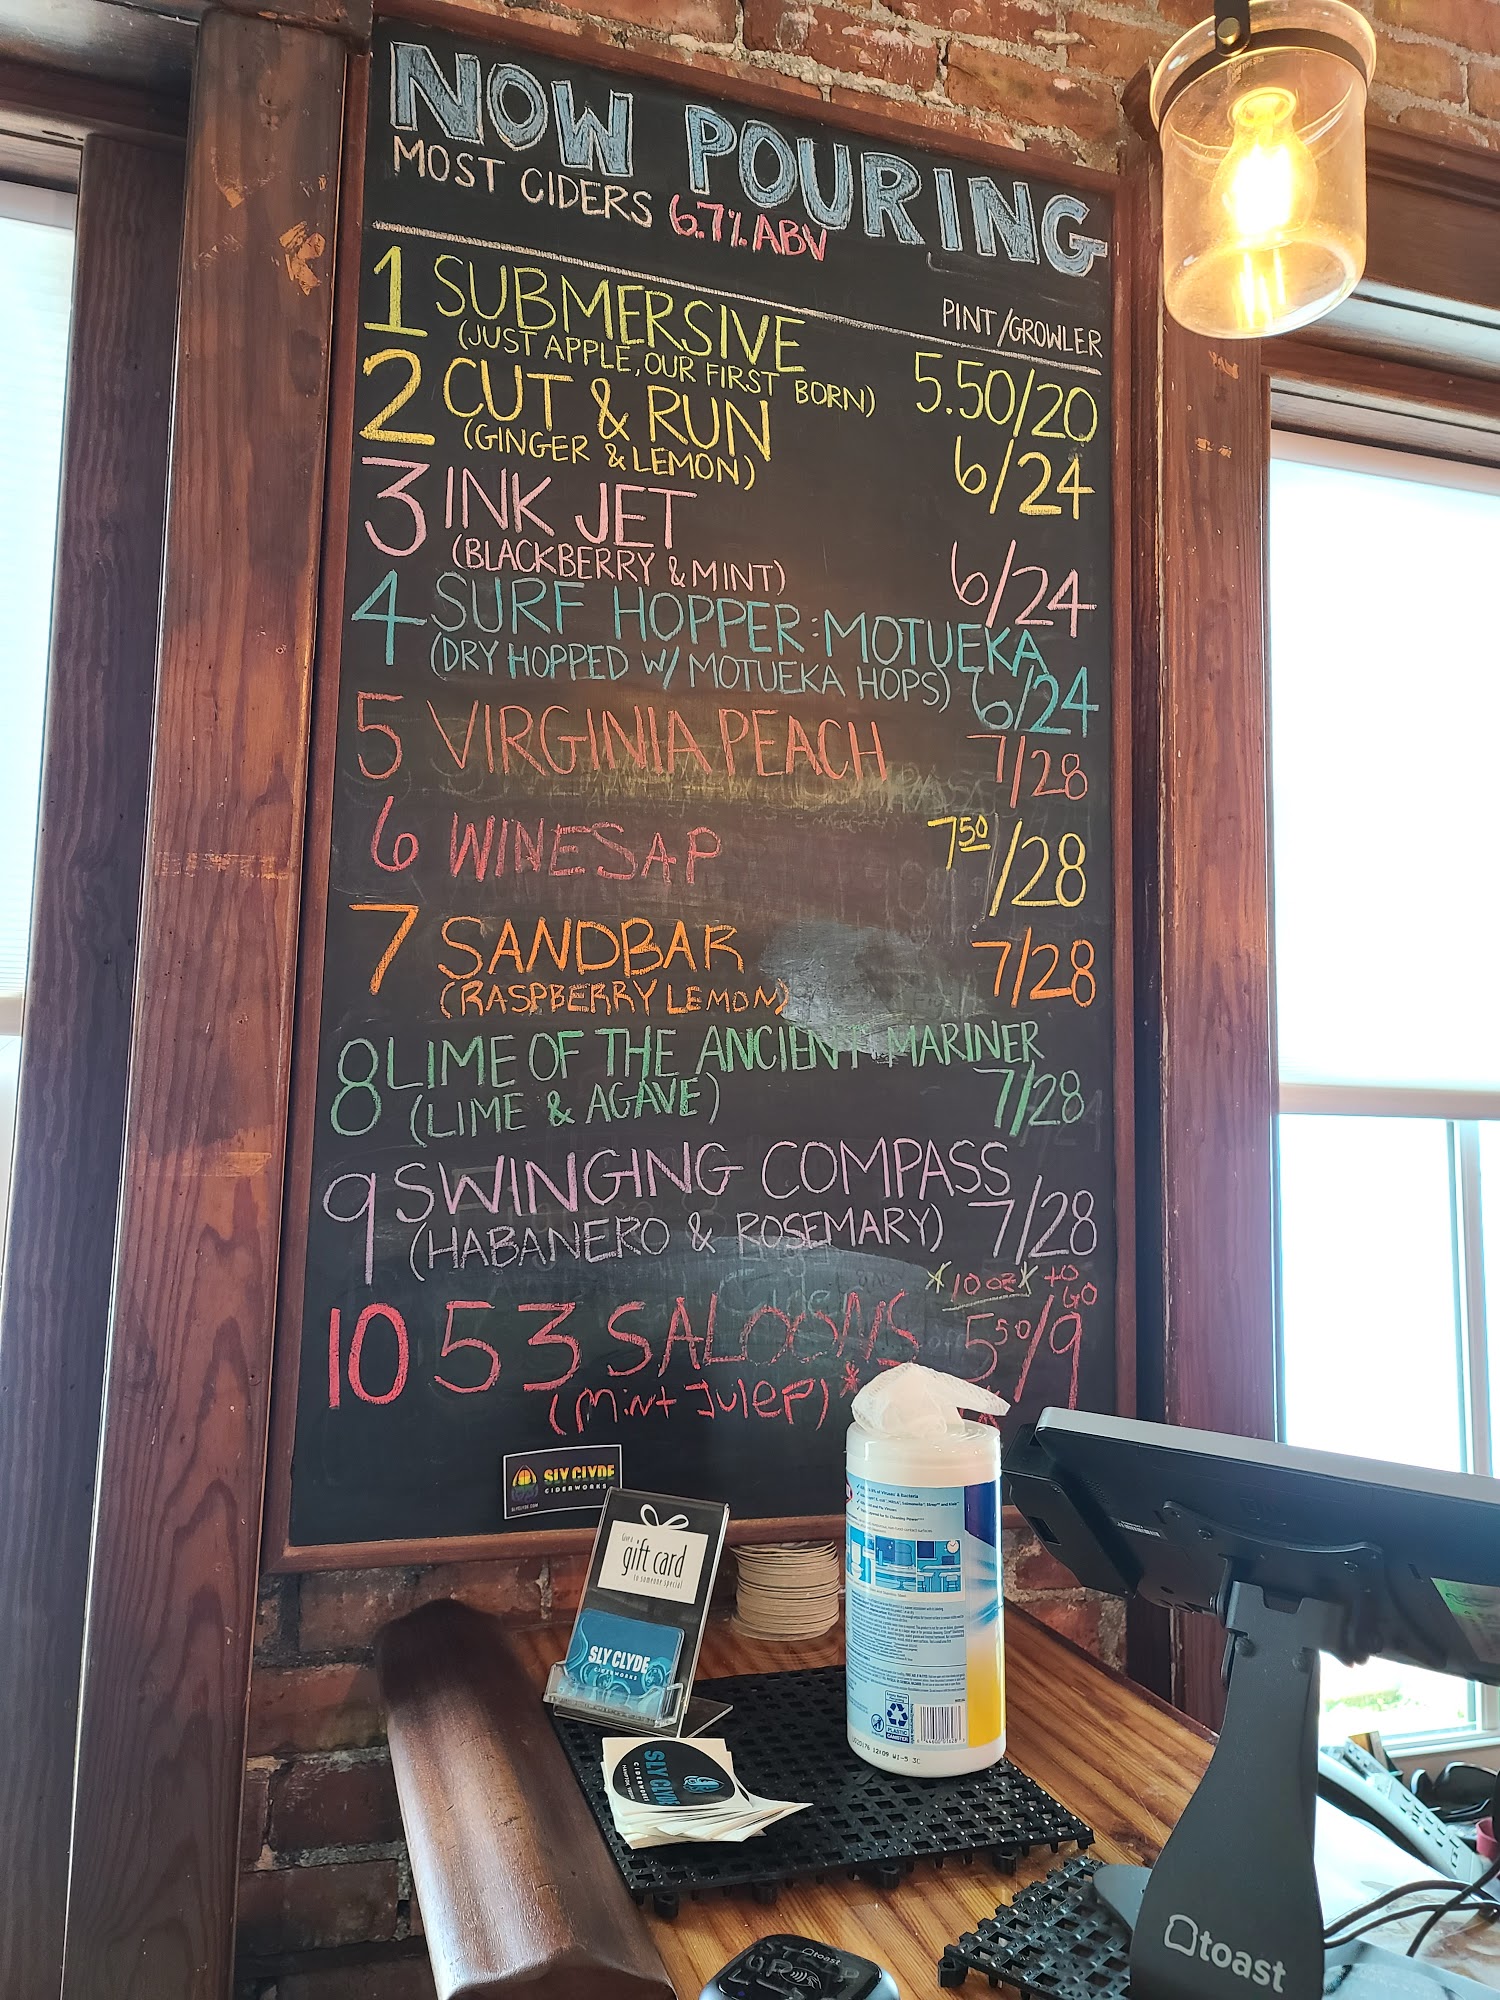 NOW POURING
MOST CIDERS 6.7% ABV
PINT/GROWLER
1 SUBMERSIVE 5.50/20
(JUST APPLE, OUR FIRST BORN)
2 CUT & RUN 6/24
(GINGER & LEMON)
3 INK JET 6/24
(BLACKBERRY & MINT)
4 SURF HOPPER: MOTUEKA
(DRY HOPPED W/ MOTUEKA HOPS) 6/24
5 VIRGINIA PEACH 7/28
6 WINESAP 7 50/28
7 SANDBAR 7/28
(RASPBERRY LEMON)
8 LIME OF THE ANCIENT MARINER
(LIME & AGAVE) 7/28
9 SWINGING COMPASS
(HABANERO & ROSEMARY) 7/28
*10 oz* to GO
10 53 SALOONS 5 50/9
(Mint Julep)*
SLY CLYDE
CIDERWORKS
SLYCLYDE.COM
Give a
gift card
to someone special
SLY CLYDE
CIDERWORKS
SLY CLYDE
CIDERWORKS
PLASTIC
CANISTER
toast
toast